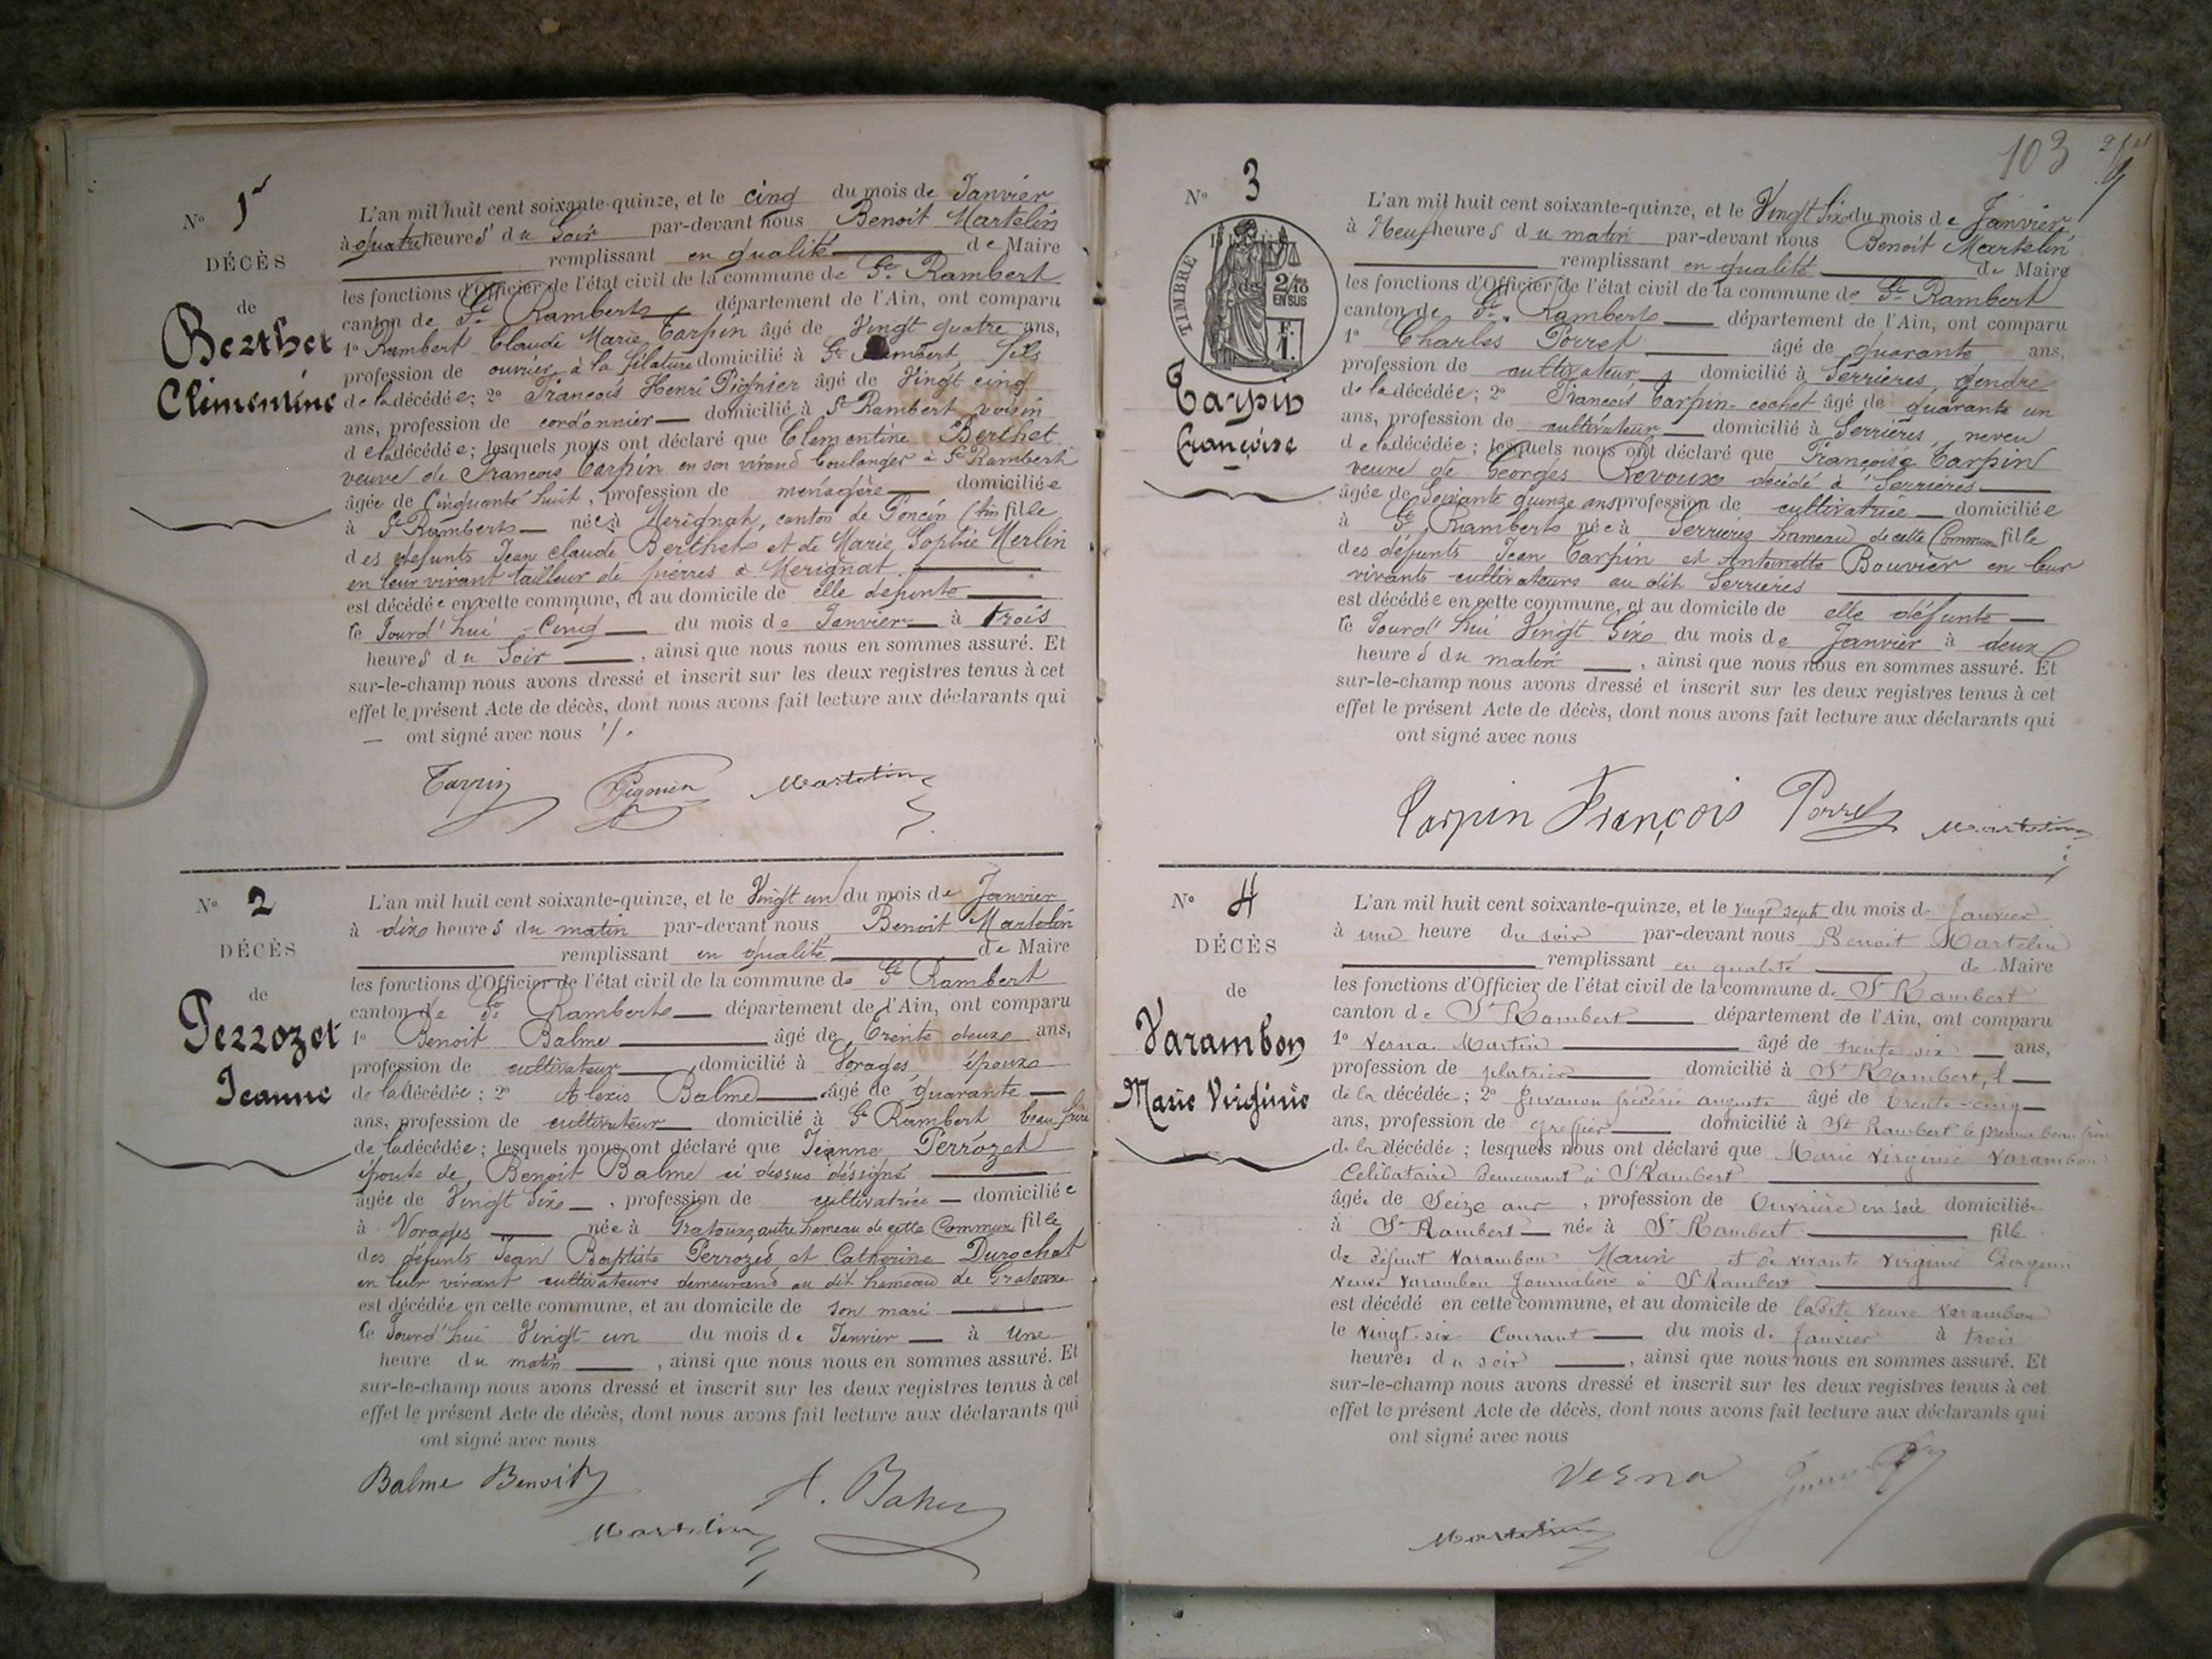 N° 1er
DÉCÈS
de
Berthet
Clémentine
L'an mil huit cent soixante-quinze, et le cinq du mois de Janvier
à quatre heures du Soir par-devant nous Benoit Martelin
remplissant en qualité de Maire
les fonctions d'Officier de l'état civil de la commune de St Rambert
canton de St Rambert département de l'Ain, ont comparu
1° Rambert Claude Marie Carpin âgé de Vingt quatre ans,
profession de ouvrier à la filature domicilié à St Rambert fils
de la décédée; 2° François Henri Pignier âgé de Vingt cinq
ans, profession de cordonnier domicilié à St Rambert voisin
de la décédée; lesquels nous ont déclaré que Clementine Berthet
veuve de Francois Carpin en son vivand boulanger à St Rambert
âgée de Cinquante huit, profession de menagère domiciliée
à St Rambert née à Merignat, canton de Poncin (Ain fille
des defunts Jean claude Berthet et de Marie Sophie Merlin
en leur vivant tailleur de pierres à Merignat
est décédée en cette commune, et au domicile de elle defunte
le Jourd'hui Cinq du mois de Janvier à trois
heures du Soir, ainsi que nous nous en sommes assuré. Et
sur-le-champ nous avons dressé et inscrit sur les deux registres tenus à cet
effet le présent Acte de décès, dont nous avons fait lecture aux déclarants qui
ont signé avec nous
Carpin Pignier Martelin
N° 2
DÉCÈS
de
Perrozet
Jeanne
L'an mil huit cent soixante-quinze, et le Vingt un du mois de Janvier
à dix heures du matin par-devant nous Benoit Martelin
remplissant en qualité de Maire
les fonctions d'Officier de l'état civil de la commune de St Rambert
canton de St Rambert département de l'Ain, ont comparu
1° Benoit Balme âgé de Trente deux ans,
profession de cultivateur domicilié à Vorages, époux
de la décédée; 2° Alexis Balme âgé de quarante
ans, profession de cultivateur domicilié à St Rambert beau frère
de la décédée; lesquels nous ont déclaré que Jeanne Perrozet
épouse de Benoit Balme ci dessus désigné
âgée de Vingt Six, profession de cultivatrice domiciliée
à Vorages née à Gratoux, autre hameau de cette Commune fille
des défunts Jean Baptiste Perrozet et Catherine Durochat
en leur vivant cultivateurs demeurand au dit hameau de Gratoux
est décédée en cette commune, et au domicile de son mari
le Jourd'hui Vingt un du mois de Janvier à une
heure du matin, ainsi que nous nous en sommes assuré. Et
sur-le-champ nous avons dressé et inscrit sur les deux registres tenus à cet
effet le présent Acte de décès, dont nous avons fait lecture aux déclarants qui
ont signé avec nous
Balme Benoit A. Balme
Martelin
103
N° 3
TIMBRE
2/10
EN SUS
F.
1.
Carpin
Françoise
L'an mil huit cent soixante-quinze, et le Vingt Six du mois de Janvier
à Neuf heures du matin par-devant nous Benoit Martelin
remplissant en qualité de Maire
les fonctions d'Officier de l'état civil de la commune de St Rambert
canton de St Rambert département de l'Ain, ont comparu
1° Charles Porret âgé de quarante ans,
profession de cultivateur, domicilié à Serrières, gendre
de la décédée; 2° François Carpin-cochet âgé de quarante un
ans, profession de cultivateur domicilié à Serrières, neveu
de la décédée; lesquels nous ont déclaré que Françoise Carpin
veuve de Georges Revoux décédé à Serrières
âgée de Soixante quinze ans profession de cultivatrice domiciliée
à St Rambert née à Serrières hameau de cette Commune fille
des défunts Jean Carpin et Antoinette Bouvier en leur
vivants cultivateurs au dit Serrières
est décédée en cette commune, et au domicile de elle défunte
le Jourd'hui Vingt Six du mois de Janvier à deux
heures du matin, ainsi que nous nous en sommes assuré. Et
sur-le-champ nous avons dressé et inscrit sur les deux registres tenus à cet
effet le présent Acte de décès, dont nous avons fait lecture aux déclarants qui
ont signé avec nous
Carpin François Porret Martelin
N° 4
DÉCÈS
de
Varambon
Marie Virginie
L'an mil huit cent soixante-quinze, et le vingt sept du mois de Janvier
à une heure du soir par-devant nous Benoit Martelin
remplissant en qualité de Maire
les fonctions d'Officier de l'état civil de la commune de St Rambert
canton de St Rambert département de l'Ain, ont comparu
1° Verna Martin âgé de trente six ans,
profession de platrier domicilié à St Rambert,
de la décédée; 2° frédéric auguste âgé de trente-cinq
ans, profession de greffier domicilié à St Rambert le premier beau frère
de la décédée; lesquels nous ont déclaré que Marie Virginie Varambon
Celibataire demeurant à St Rambert
âgée de Seize ans, profession de Ouvrière en soie domiciliée
à St Rambert née à St Rambert fille
de défunt Varambon Marin et de vivante Virginie
veuve Varambon Journalière à St Rambert
est décédé en cette commune, et au domicile de ladite veuve Varambon
le Vingt-six Courant du mois de Janvier à trois
heures du soir, ainsi que nous nous en sommes assuré. Et
sur-le-champ nous avons dressé et inscrit sur les deux registres tenus à cet
effet le présent Acte de décès, dont nous avons fait lecture aux déclarants qui
ont signé avec nous
Verna
Martelin